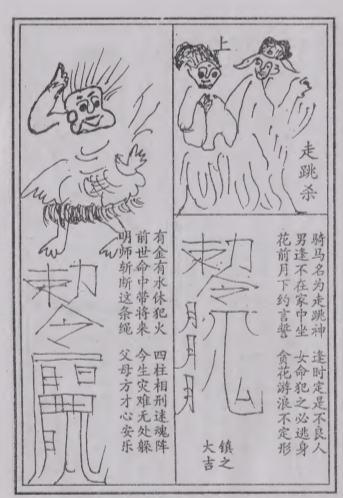 上
走跳杀
骑马名为走跳神　逢时定是不良人
男逢不在家中坐　女命犯之必逃身
花前月下约言誓　贪花游浪不定形
勅令
月月月
镇之
大吉
有金有水休犯火　四柱相刑迷魂阵
前世命中带将来　今生灾难无处躲
明师斩断这条绳　父母方才心安乐
勅令